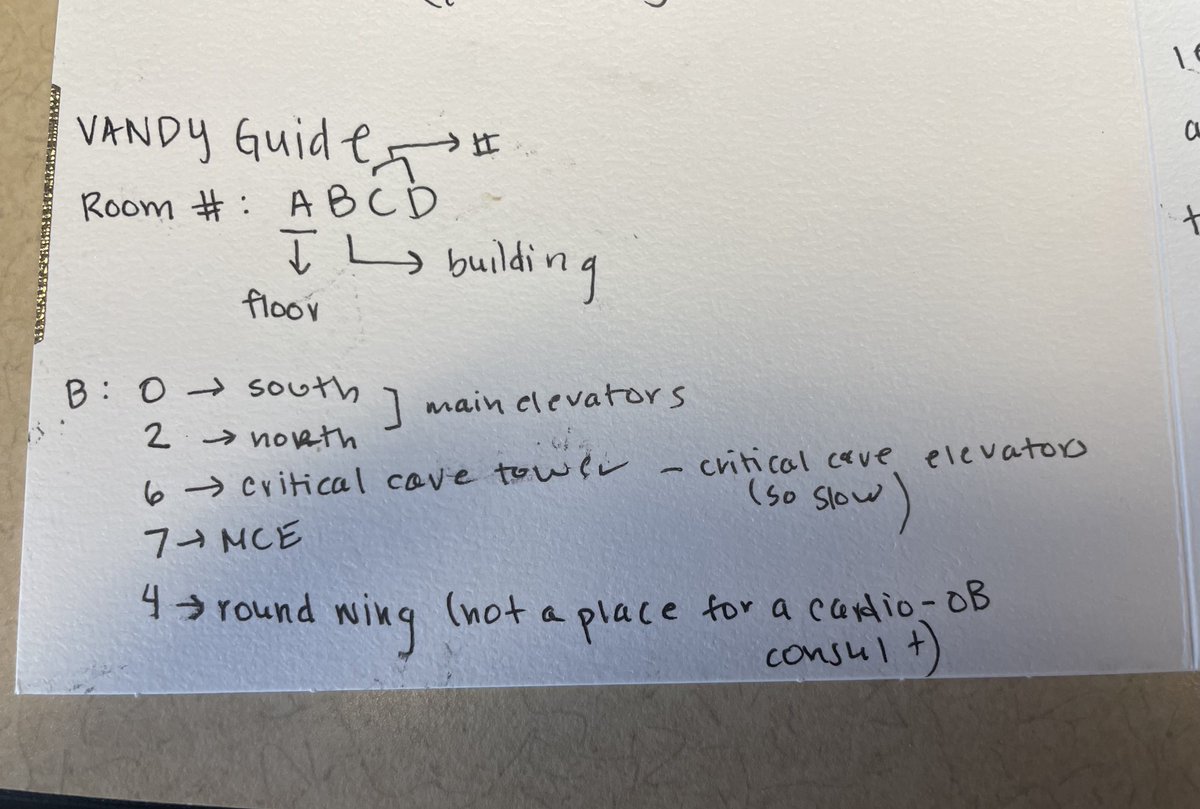 VANDY Guide → #
Room #: A B C D
↓ → building
floor
B: 0 → south ] main elevators
2 → north
6 → critical care tower - critical care elevators
(so slow)
7 → MCE
4 → round wing (not a place for a cardio-OB
consult)